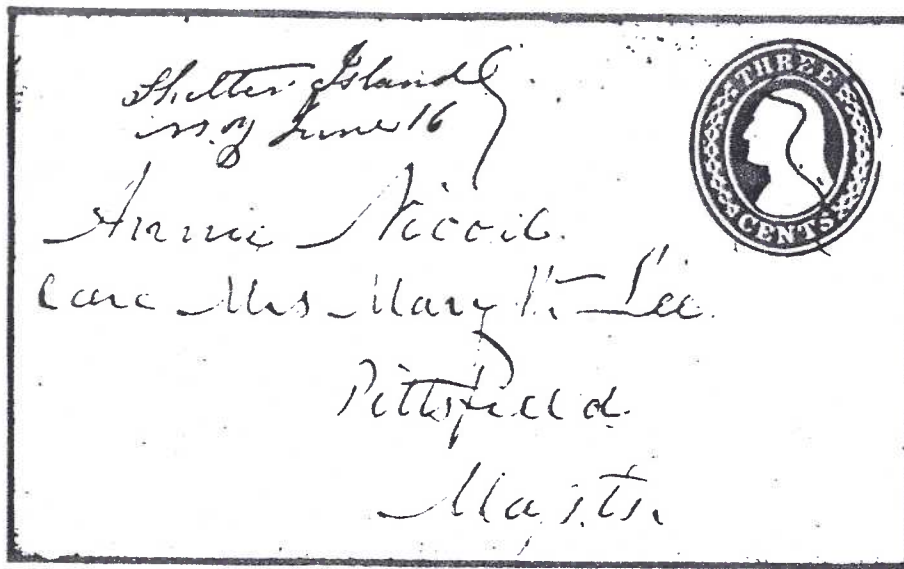 Shelter Island
N.Y June 16
THREE
CENTS
Annie Nicoll.
Care Mrs Mary Lee
Pittsfield.
Massts.